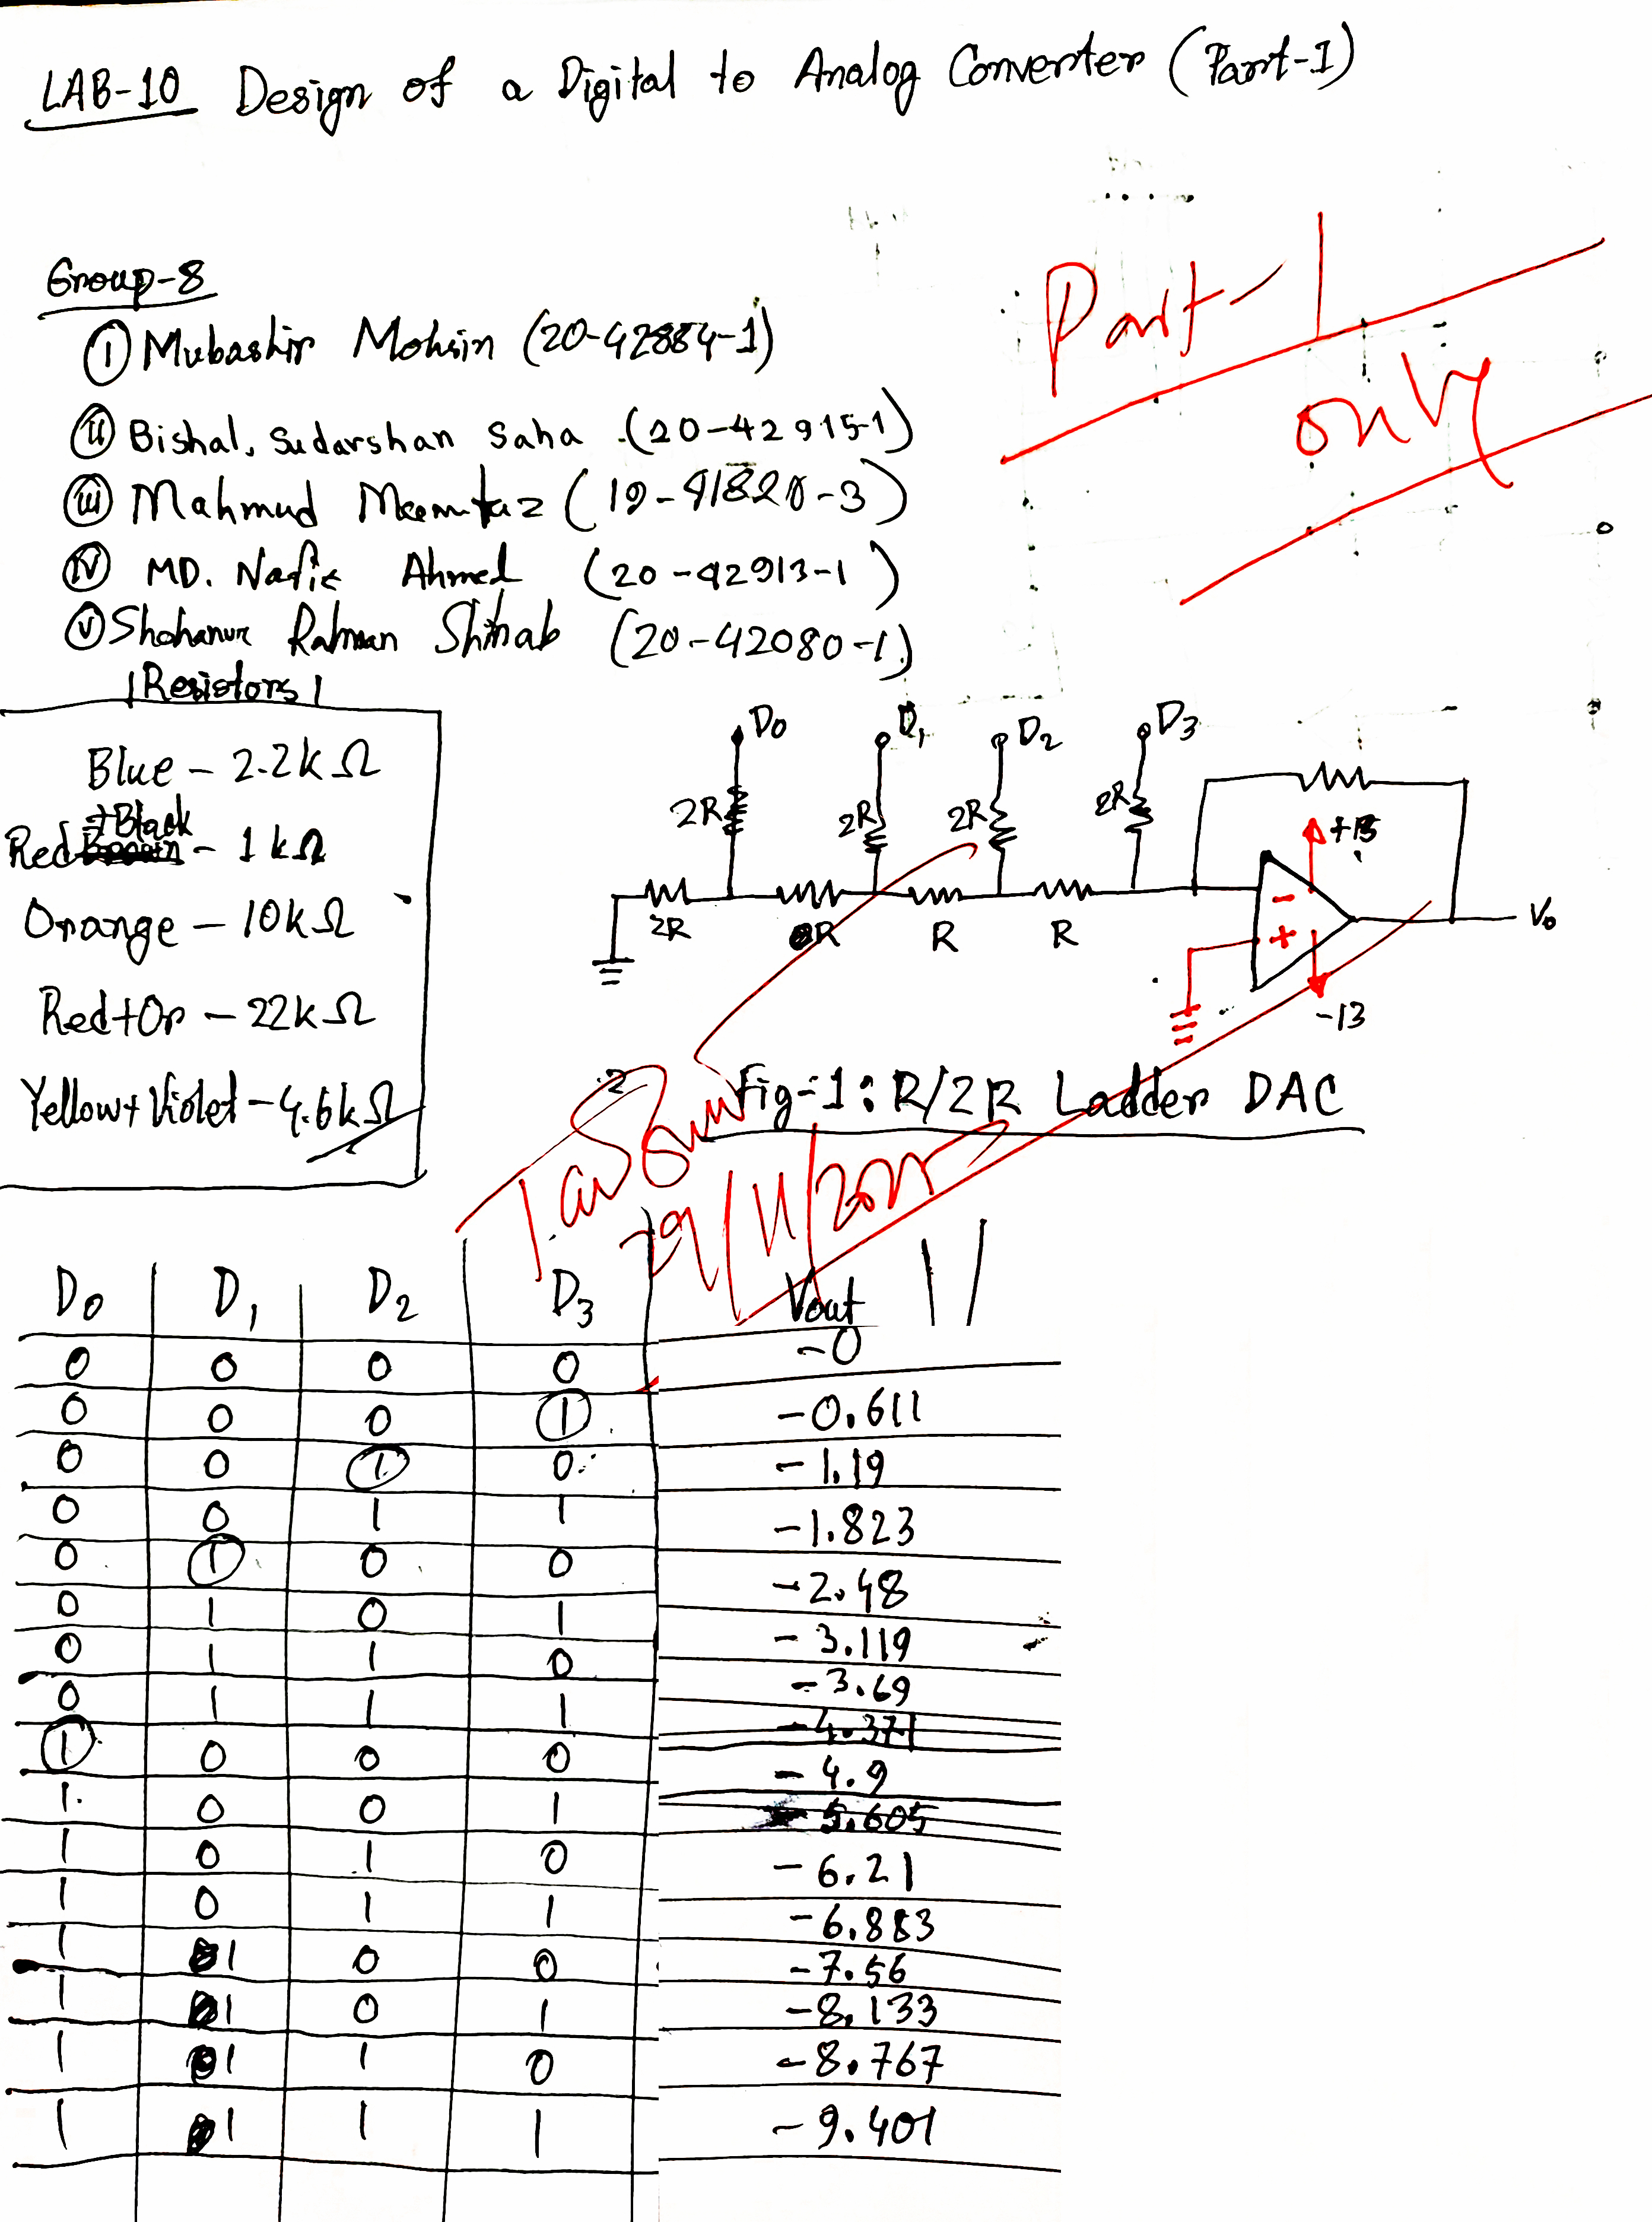 LAB-10 Design of a Digital to Analog Converter (Part-1)
Part-1
only
Group-8
(i) Mubashir Mohsin (20-42884-1)
(ii) Bishal, Sudarshan Saha (20-42915-1)
(iii) Mahmud (19-41820-3)
(iv) MD. Nafiz Ahmed (20-42913-1)
(v) Shohanur Rahman Shihab (20-42080-1)
Resistors
Blue - 2.2kΩ
+Black
Red - 1kΩ
Orange - 10kΩ
Red+Or - 22kΩ
Yellow+Violet - 4.6kΩ
D0 D1 D2 D3
2R 2R 2R 2R
+13
-
+
V0
2R R R R
-13
Fig-1: R/2R Ladder DAC
29/11/2022
D0 D1 D2 D3 Vout
0 0 0 0 -0
0 0 0 1 -0.611
0 0 1 0 -1.19
0 0 1 1 -1.823
0 1 0 0 -2.48
0 1 0 1 -3.119
0 1 1 0 -3.69
0 1 1 1 -4.371
1 0 0 0 -4.9
1 0 0 1 -5.605
1 0 1 0 -6.21
1 0 1 1 -6.883
1 1 0 0 -7.56
1 1 0 1 -8.133
1 1 1 0 -8.767
1 1 1 1 -9.401